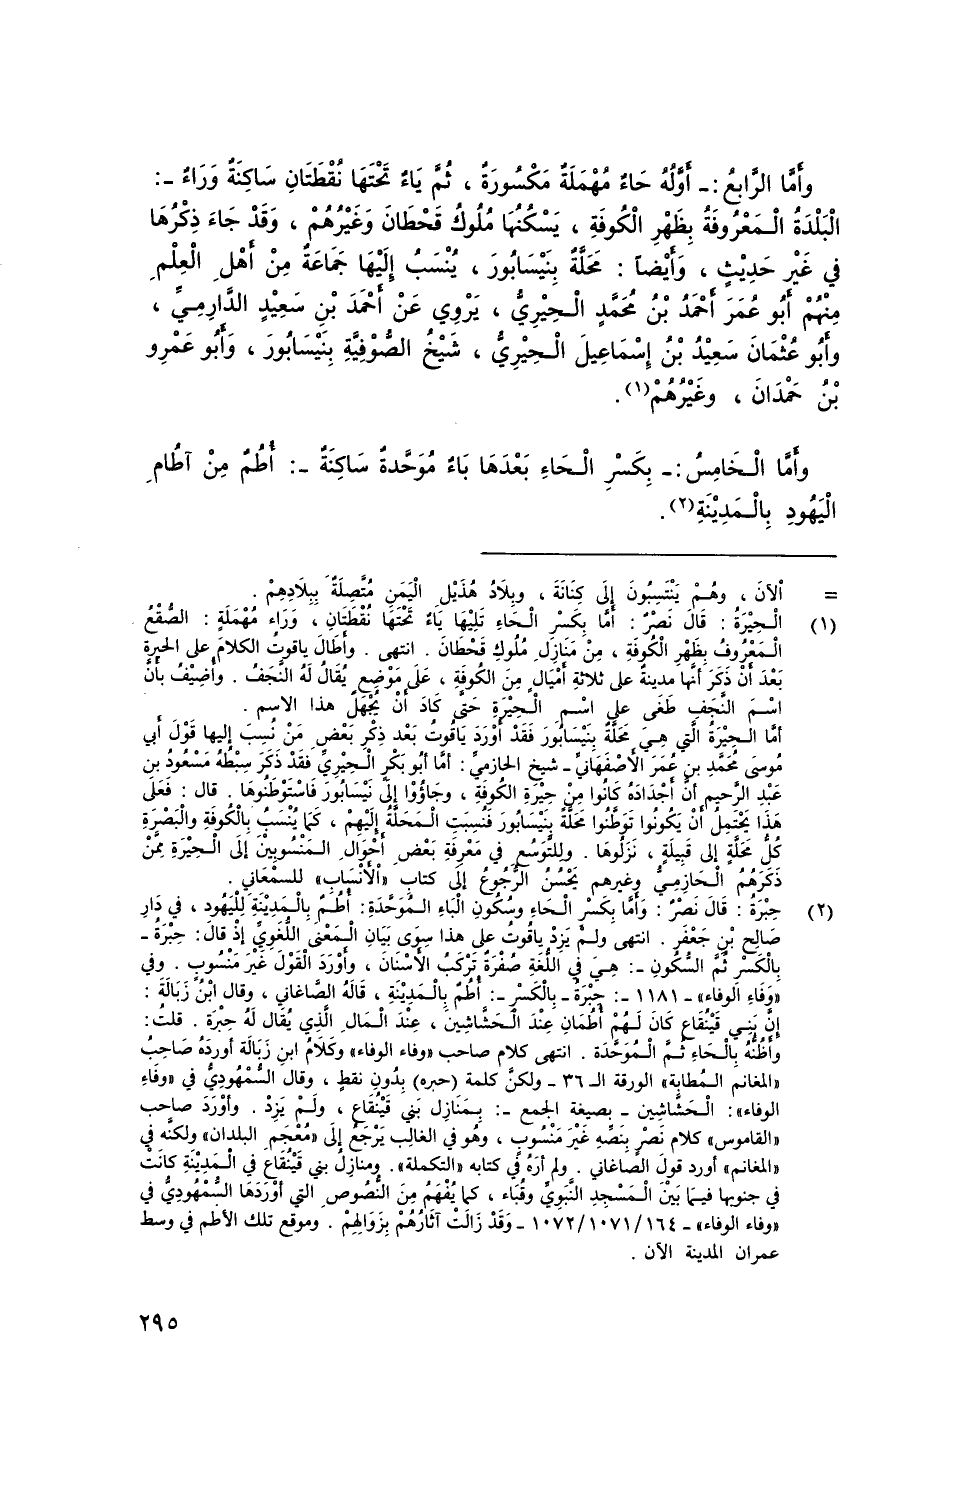 وأَمَّا الرَّابعُ :ـ أَوَّلُهُ حَاءٌ مُهْمَلَةٌ مَكْسُورَةٌ ، ثُمَّ يَاءٌ تَحْتَهَا نُقْطَتَانِ سَاكِنَةٌ وَرَاءٌ ـ:
الْبَلْدَةُ الْـمَعْرُوفَةُ بِظَهْرِ الْكُوفَةِ ، يَسْكُنُهَا مُلُوكُ قَحْطَانَ وَغَيْرُهُمْ ، وَقَدْ جَاءَ ذِكْرُهَا
في غَيْرِ حَدِيْثٍ ، وَأَيْضاً : مَحَلَّةٌ بِنَيْسَابُورَ ، يُنْسَبُ إِلَيْهَا جَمَاعَةٌ مِنْ أَهْلِ الْعِلْمِ
مِنْهُمْ أَبُو عُمَرَ أَحْمَدُ بْنُ مُحَمَّدٍ الْـحِيْرِيُّ ، يَرْوِي عَنْ أَحْمَدَ بْنِ سَعِيْدٍ الدَّارِمِـيِّ ،
وأَبُو عُثْمَانَ سَعِيْدُ بْنُ إِسْمَاعِيلَ الْـحِيْرِيُّ ، شَيْخُ الصُّوْفِيَّةِ بِنَيْسَابُورَ ، وَأَبُو عَمْرِو
بْنُ حَمْدَانَ ، وغَيْرُهُمْ(١).
وأَمَّا الْـخَامِسُ :ـ بِكَسْرِ الْـحَاءِ بَعْدَهَا بَاءٌ مُوَحَّدةٌ سَاكِنَةٌ ـ: أُطُمٌ مِنْ آطَامِ
الْيَهُودِ بِالْـمَدِيْنَةِ(٢).
= اْلآنَ ، وهُـمْ يَنْتَسِبُونَ إِلَى كِنَانَةَ ، وبِلَادُ هُذَيْلِ الْيَمَنِ مُتَّصِلَةٌ بِبِلَادِهِمْ .
(١) الْـحِيْرَةُ : قَالَ نَصْرٌ : أَمَّا بِكَسْرِ الْـحَاءِ تَلِيْهَا يَاءٌ تَحْتَهَا نُقْطَتَانِ ، وَرَاء مُهْمَلَةٍ : الصُّقْعُ
الْـمَعْرُوفُ بِظَهْرِ الْكُوفَةِ ، مِنْ مَنَازِلِ مُلُوكِ قَحْطَانَ . انتهى . وأَطَالَ ياقوتُ الكلامَ على الحيرةِ
بَعْدَ أَنْ ذَكَرَ أَنَّهَا مدينةٌ على ثلاثةِ أَمْيَالٍ مِنَ الكُوفَةِ ، عَلَى مَوْضِعٍ يُقَالُ لَهُ النَّجَفُ . وأُضِيْفُ بأَنَّ
اسْـمَ النَّجَفِ طَغَى على اسْـمِ الْـحِيْرَةِ حَتَّى كَادَ أَنْ يُجْهَلَ هذا الاسم .
أمَّا الـحِيْرَةُ الَّتي هِـيَ مَحَلَّةٌ بِنَيْسَابُورَ فَقَدْ أَوْرَدَ يَاقُوتُ بَعْدَ ذِكْرِ بَعْضِ مَنْ نُسِبَ إليها قَوْلَ أَبي
مُوسَى مُحَمَّدِ بنِ عُمَرَ الأَصْفَهَانيِّ ـ شيخِ الحازميِّ : أَمَّا أَبُو بَكْرٍ الْـحِيْرِيُّ فَقَدْ ذَكَرَ سِبْطُهُ مَسْعُودُ بن
عَبْدِ الرَّحيمِ أَنَّ أَجْدَادَهُ كَانُوا مِنْ حِيْرَةِ الكُوفَةِ ، وجَاؤُوْا إِلَى نَيْسَابُورَ فَاسْتَوْطَنُوهَا . قال : فَعَلَى
هَذَا يَحْتَمِلُ أَنْ يَكُونُوا تَوَطَّنُوا مَحَلَّةً بِنَيْسَابُورَ فَنُسِبَتِ الْـمَحَلَّةُ إِلَيْهِمْ ، كَمَا يُنْسَبُ بِالْكُوفَةِ والْبَصْرَةِ
كُلُّ مَحَلَّةٍ إِلى قَبِيلَةٍ ، نَزَلُوهَا . وللِتَّوَسُّعِ في مَعْرِفَةِ بَعْضِ أَحْوَالِ الـمَنْسُوبِيْنَ إِلَى الْـحِيْرَةِ مِمَّنْ
ذَكَرَهُمُ الْـحَازِمِـيُّ وغيرهم يَحْسُنُ الرُّجُوعُ إِلَى كتابِ «اْلأَنْسَابِ» للسمْعَاني .
(٢) حِبْرَةُ : قَالَ نَصْرٌ : وَأَمَّا بِكَسْرِ الْـحَاءِ وسُكُونِ الْبَاءِ الـمُوَحَّدَةِ : أُطُمٌ بِالْـمَدِيْنَةِ لِلْيَهُودِ ، في دَارِ
صَالِحِ بْنِ جَعْفَرٍ . انتهى ولـمْ يَزِدْ ياقوتُ على هذا سِوَى بَيَانِ الْـمَعْنَى اللُّغَوِيِّ إِذْ قالَ : حِبْرَةُ ـ
بِالْكَسْرِ ثُمَّ السُّكُونِ ـ: هِـيَ في اللُّغَةِ صُفْرَةٌ تَرْكَبُ الأَسْنَانَ ، وأَوْرَدَ الْقَوْلَ غَيْرَ مَنْسُوبٍ . وفي
«وَفَاءِ الوفاء» ـ ١١٨١ ـ: حِبْرَةُ ـ بِالْكَسْرِ ـ: أُطُمٌ بِالْـمَدِيْنَةِ ، قَالَهُ الصَّاغاني ، وقال ابْنُ زَبَالَةَ :
إِنَّ بَنِـي قَيْنُقَاعِ كَانَ لَـهُمْ أُطُمَانِ عِنْدَ الْـحَشَّاشِينَ ، عِنْدَ الْـمَالِ الَّذِي يُقَالُ لَهُ حِبْرَة . قلتُ :
وأَظُنُّهُ بِالْـحَاءِ ثُـمَّ الْـمُوَحَّدَة . انتهى كلام صاحب «وفاء الوفاء» وكَلَامُ ابنِ زَبَالَةَ أوردَهُ صَاحِبُ
«المغانم الـمُطابة» الورقة الـ ٣٦ ـ ولكنَّ كلمة (حبره) بِدُونِ نقطٍ ، وقال السَّمْهُودِيُّ في «وفَاءِ
الوفاء» : الْـحَشَّاشين ـ بصيغة الجمع ـ: بِـمَنَازلِ بَني قَيْنُقَاعٍ ، ولَـمْ يَزِدْ . وأَوْرَدَ صاحب
«القاموس» كلام نَصْرٍ بِنَصِّهِ غَيْرَ مَنْسُوبٍ ، وهُوَ في الغالِبِ يَرْجَعُ إِلَى «مُعْجَمِ البلدان» ولكنَّه في
«المغانم» أورد قولَ الصَّاغاني . ولم أَرَهُ في كتابه «التكملة». ومنازلُ بني قَيْنُقَاعٍ في الْـمَدِيْنَةِ كانَتْ
في جنوبِها فيـمَا بَيْنَ الْـمَسْجِدِ النَّبَوِيِّ وقُبَاء ، كما يُفْهَمُ مِنَ النُّصُوصِ التي أَوْرَدَهَا السَّمْهُودِيُّ في
«وفاء الوفاء» ـ ١٠٧٢/١٠٧١/١٦٤ ـ وَقَدْ زَالَتْ آثَارُهُمْ بِزَوَالِهِمْ . وموقع تلك الأطم في وسط
عمران المدينة الآن .
٢٩٥